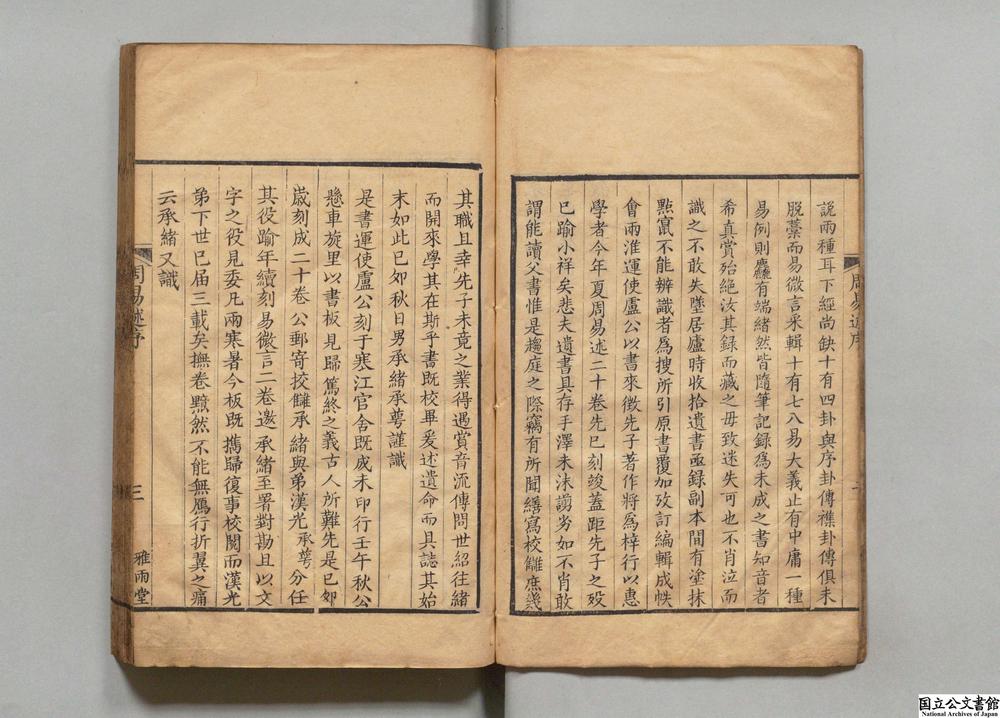 說兩種耳下經尚缺十有四卦與序卦傳襍卦傳俱未
脫藁而易微言采輯十有七八易大義止有中庸一種
易例則麤有端緒然皆隨筆記錄爲未成之書知音者
希真賞殆絶汝其録而藏之毋致迷失可也不肖泣而
識之不敢失墜居廬時收拾遺書亟録副本間有塗抹
㸃竄不能辨識者爲搜所引原書覆加攷訂編輯成帙
會兩淮運使盧公以書來徵先子著作將爲梓行以惠
學者今年夏周易述二十卷先已刻竣蓋距先子之歿
已踰小祥矣悲夫遺書具存手澤未沬謭劣如不肖敢
謂能讀父書惟是趨庭之際竊有所聞繕寫校讎庶幾
周易述序
其職且幸先子未竟之業得遇賞音流傳問世紹往緒
而開來學其在斯乎書既校畢爰述遺命而具誌其始
末如此己卯秋日男承緒承萼謹識
是書運使盧公刻于寒江官舍既成未印行壬午秋公
懸車旋里以書板見歸篤終之義古人所難先是己卯
歲刻成二十卷公郵寄挍讎承緒與弟漢光承萼分任
其役踰年續刻易微言二卷邀承緒至署對勘且以文
字之役見委凡兩寒暑今板既携歸復事校閱而漢光
弟下世已届三載矣撫卷黯然不能無鴈行折翼之痛
云承緒又識
周易述序
三
雅雨堂
国立公文書館
National Archives of Japan